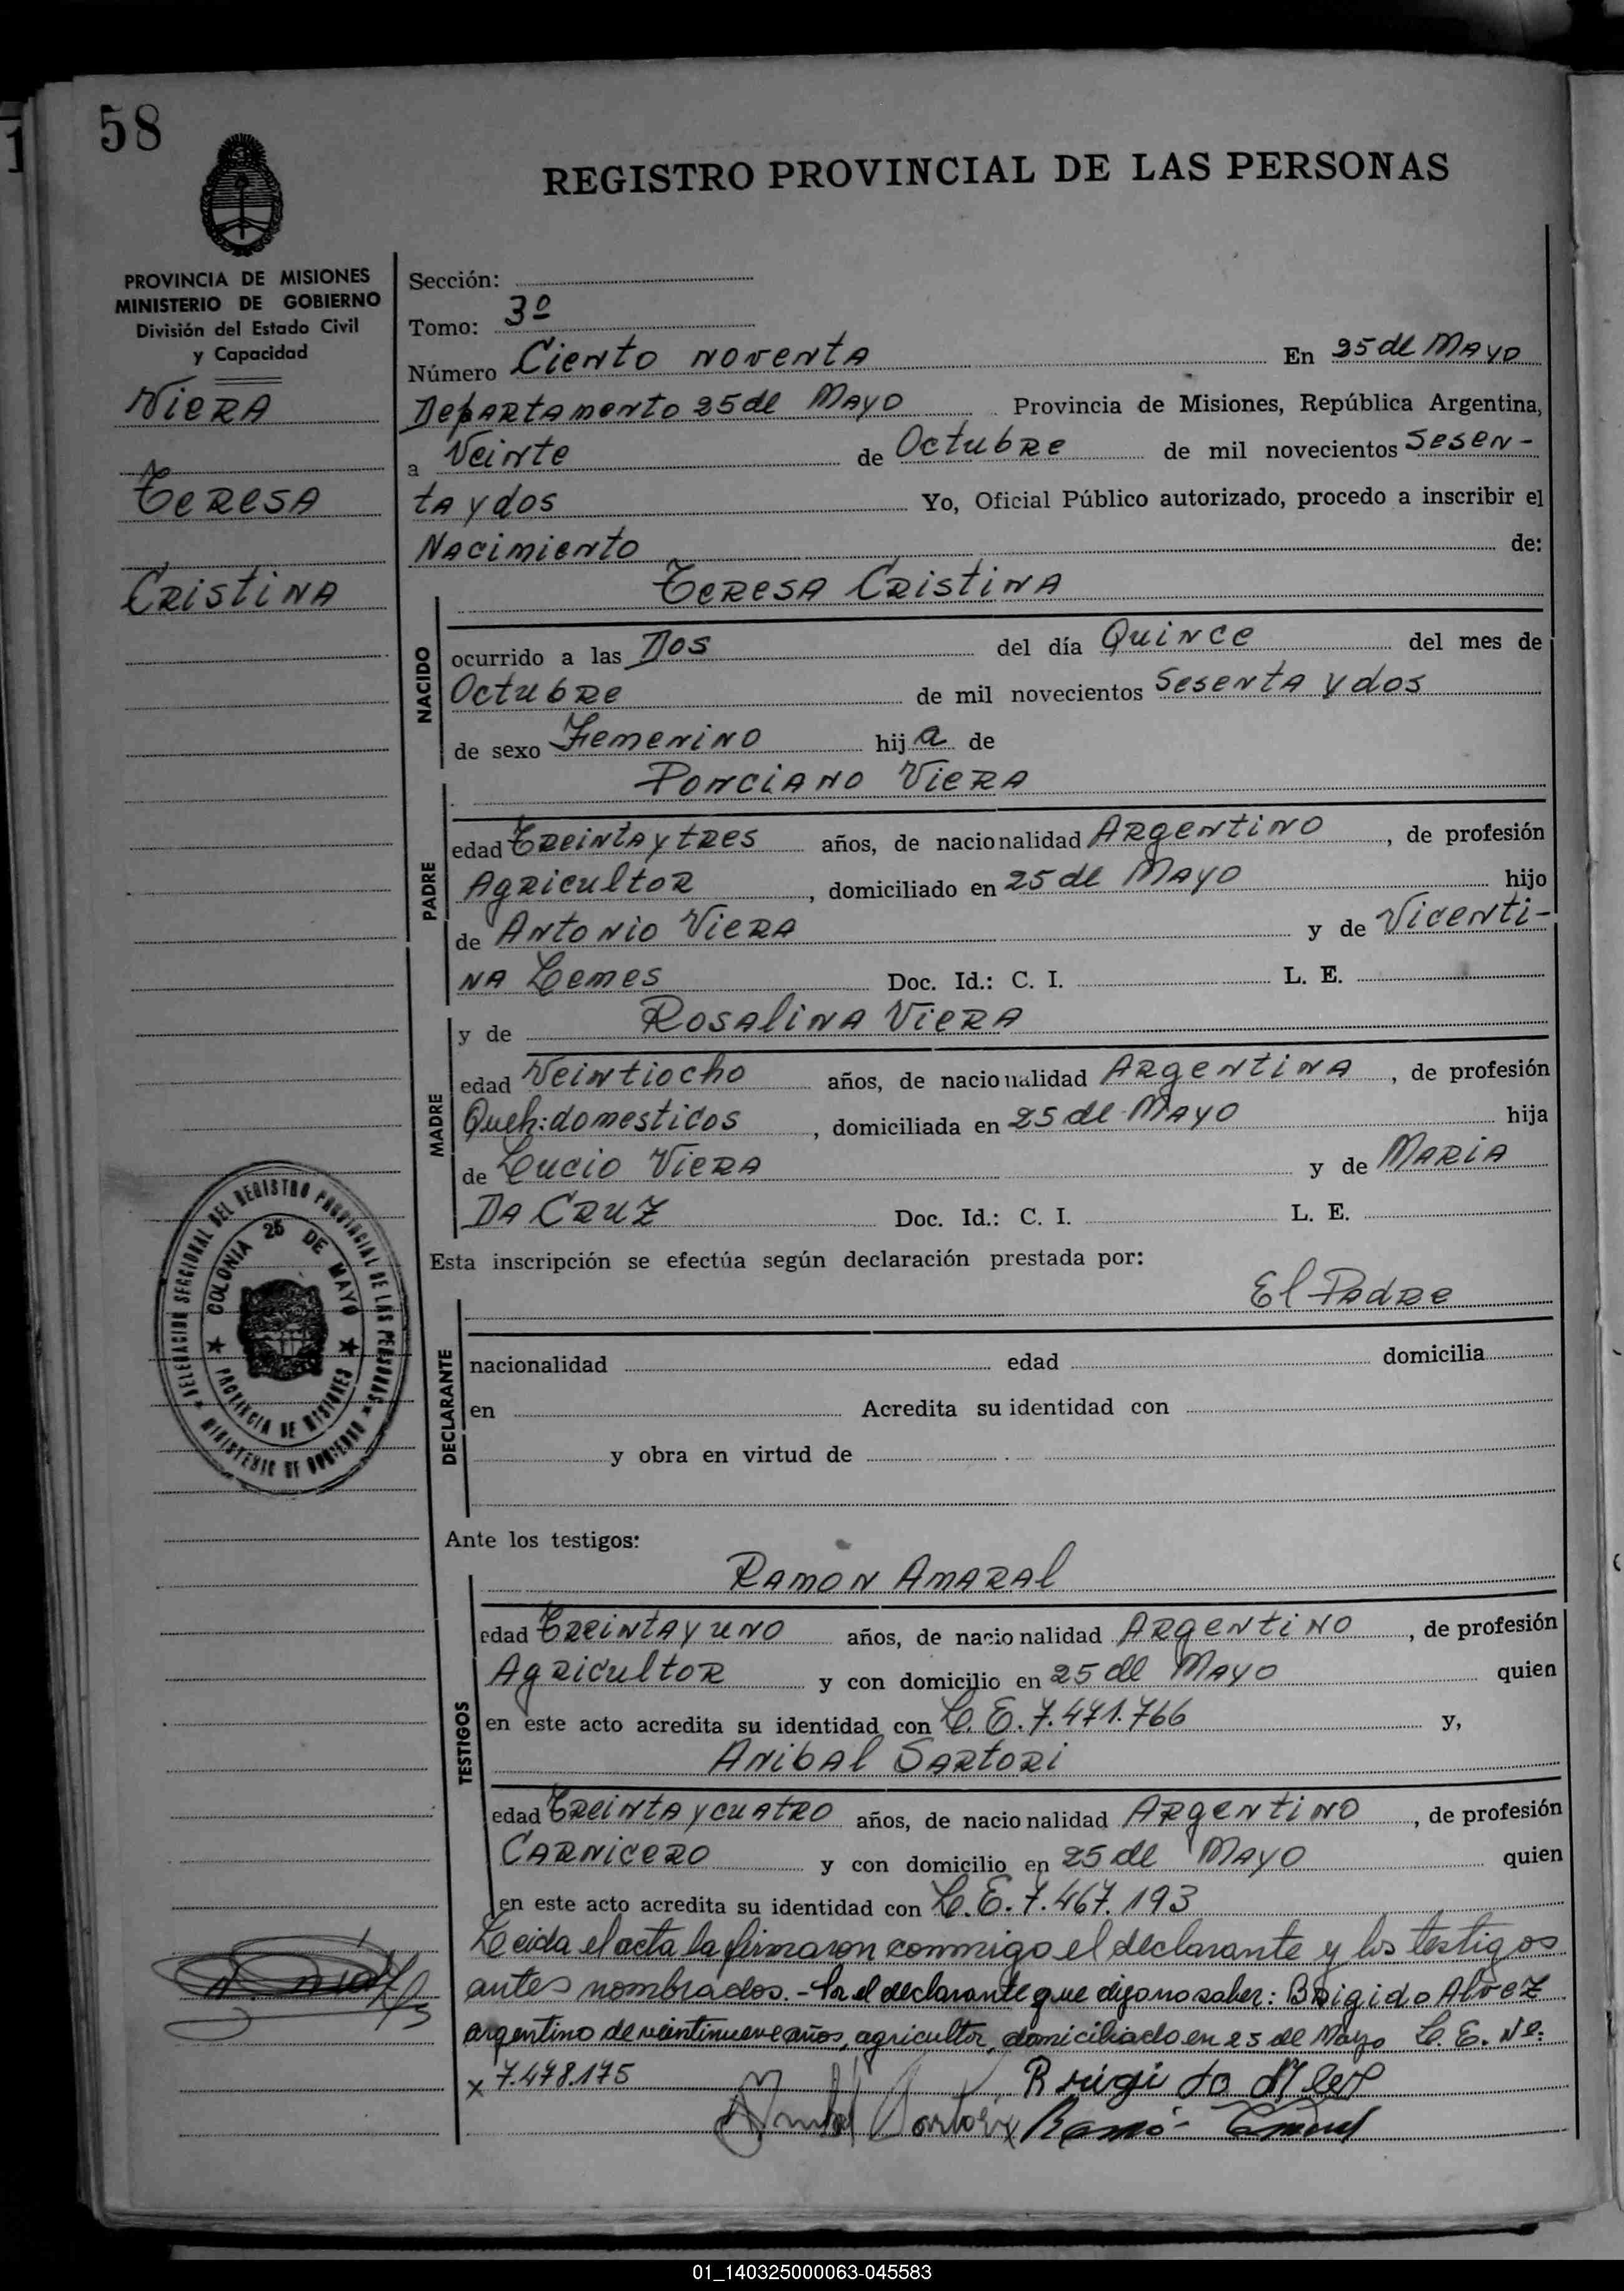 58
REGISTRO PROVINCIAL DE LAS PERSONAS
PROVINCIA DE MISIONES
MINISTERIO DE GOBIERNO
División del Estado Civil
y Capacidad
VieRA
TeResA
CRistinA
Sección:
Tomo: 3º
Número Ciento noventa En 25 de Mayo
Departamento 25 de Mayo Provincia de Misiones, República Argentina,
a Veinte de Octubre de mil novecientos Sesen-
ta y dos Yo, Oficial Público autorizado, procedo a inscribir el
Nacimiento de:
Teresa Cristina
NACIDO
ocurrido a las Dos del día Quince del mes de
Octubre de mil novecientos Sesenta y dos
de sexo Femenino hij a de
Ponciano Viera
PADRE
edad Treinta y tres años, de nacionalidad Argentino, de profesión
Agricultor, domiciliado en 25 de Mayo hijo
de Antonio Viera y de Vicenti-
na Lemes Doc. Id.: C. I. L. E.
MADRE
y de Rosalina Viera
edad Veintiocho años, de nacionalidad Argentina, de profesión
Queh: domesticos, domiciliada en 25 de Mayo hija
de Lucio Viera y de Maria
Da Cruz Doc. Id.: C. I. L. E.
DELEGACION SECCIONAL DEL REGISTRO PROVINCIAL DE LAS PERSONAS
COLONIA 25 DE MAYO
PROVINCIA DE MISIONES
MINISTERIO DE GOBIERNO
Esta inscripción se efectúa según declaración prestada por:
El Padre
DECLARANTE
nacionalidad edad domicilia
en Acredita su identidad con
y obra en virtud de
Ante los testigos:
TESTIGOS
Ramon Amaral
edad Treinta y uno años, de nacionalidad Argentino, de profesión
Agricultor y con domicilio en 25 de Mayo quien
en este acto acredita su identidad con L. E. 7.471.766 y,
Anibal Sartori
edad Treinta y cuatro años, de nacionalidad Argentino, de profesión
Carnicero y con domicilio en 25 de Mayo quien
en este acto acredita su identidad con L. E. 7.467.193
Leida el acta la firmaron conmigo el declarante y los testigos
antes nombrados.- Por el declarante que dijo no saber: Brigido Alvez
argentino de veintinueve años, agricultor, domiciliado en 25 de Mayo L. E. Nº.
x 7.478.175 Brigido Alvez
Anibal Sartori x Ramón Amaral
01_140325000063-045583